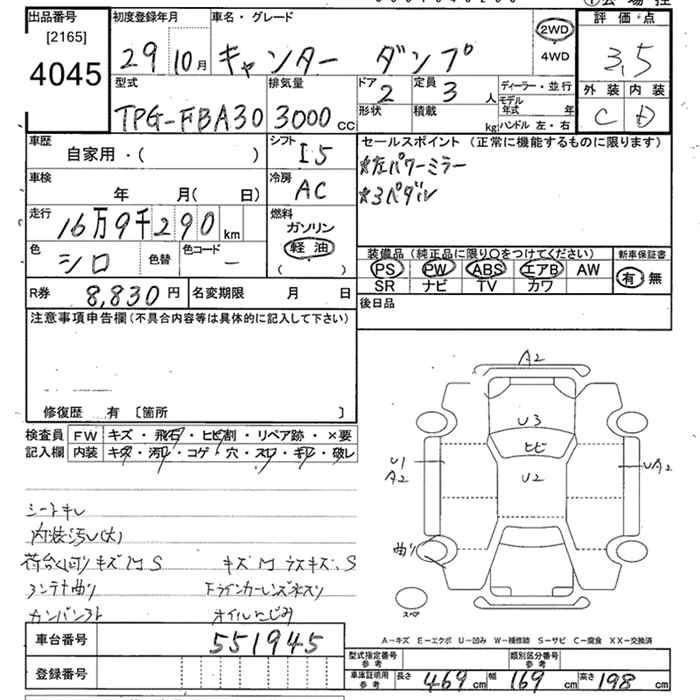 出品番号
[2165]
4045
初度登録年月
29年10月
車名・グレード
キャンター ダンプ
2WD
4WD
評価点
3.5
外装 内装
C D
型式
TPG-FBA30
排気量
3000cc
ドア
2
定員
3人
形状
積載
kg
ディーラー・並行
モデル年式 年
ハンドル 左・右
車歴
自家用・( )
シフト
I5
セールスポイント (正常に機能するものに限ります)
★左パワーミラー
★3ペダル
車検
年 月( 日)
冷房
AC
走行
16万9千290km
燃料
ガソリン
軽油
( )
色
シロ
色替
色コード
—
装備品(純正品に限り○をつけてください)
PS PW ABS エアB AW
SR ナビ TV カワ
新車保証書
有 無
R券
8,830円
名変期限 月 日
後日品
注意事項申告欄(不具合内容等は具体的に記入して下さい)
修復歴 有 〔箇所 〕
検査員記入欄
FW キズ・飛石・ヒビ割・リペア跡・×要
内装 キズ・汚レ・コゲ・穴・スレ・キレ・破レ
シートキレ
内装汚レ(大)
キズM S
キズM
S
オイルにじみ
A2
U3
ヒビ
U2
U1
A2
UA2
曲り
スペア
A-キズ E-エクボ U-凹み W-補修跡 S-サビ C-腐食 XX-交換済
車台番号
551945
登録番号
型式指定番号
参考
類別区分番号
参考
車庫証明用
参考
長さ 469cm 幅 169cm 高さ 198cm